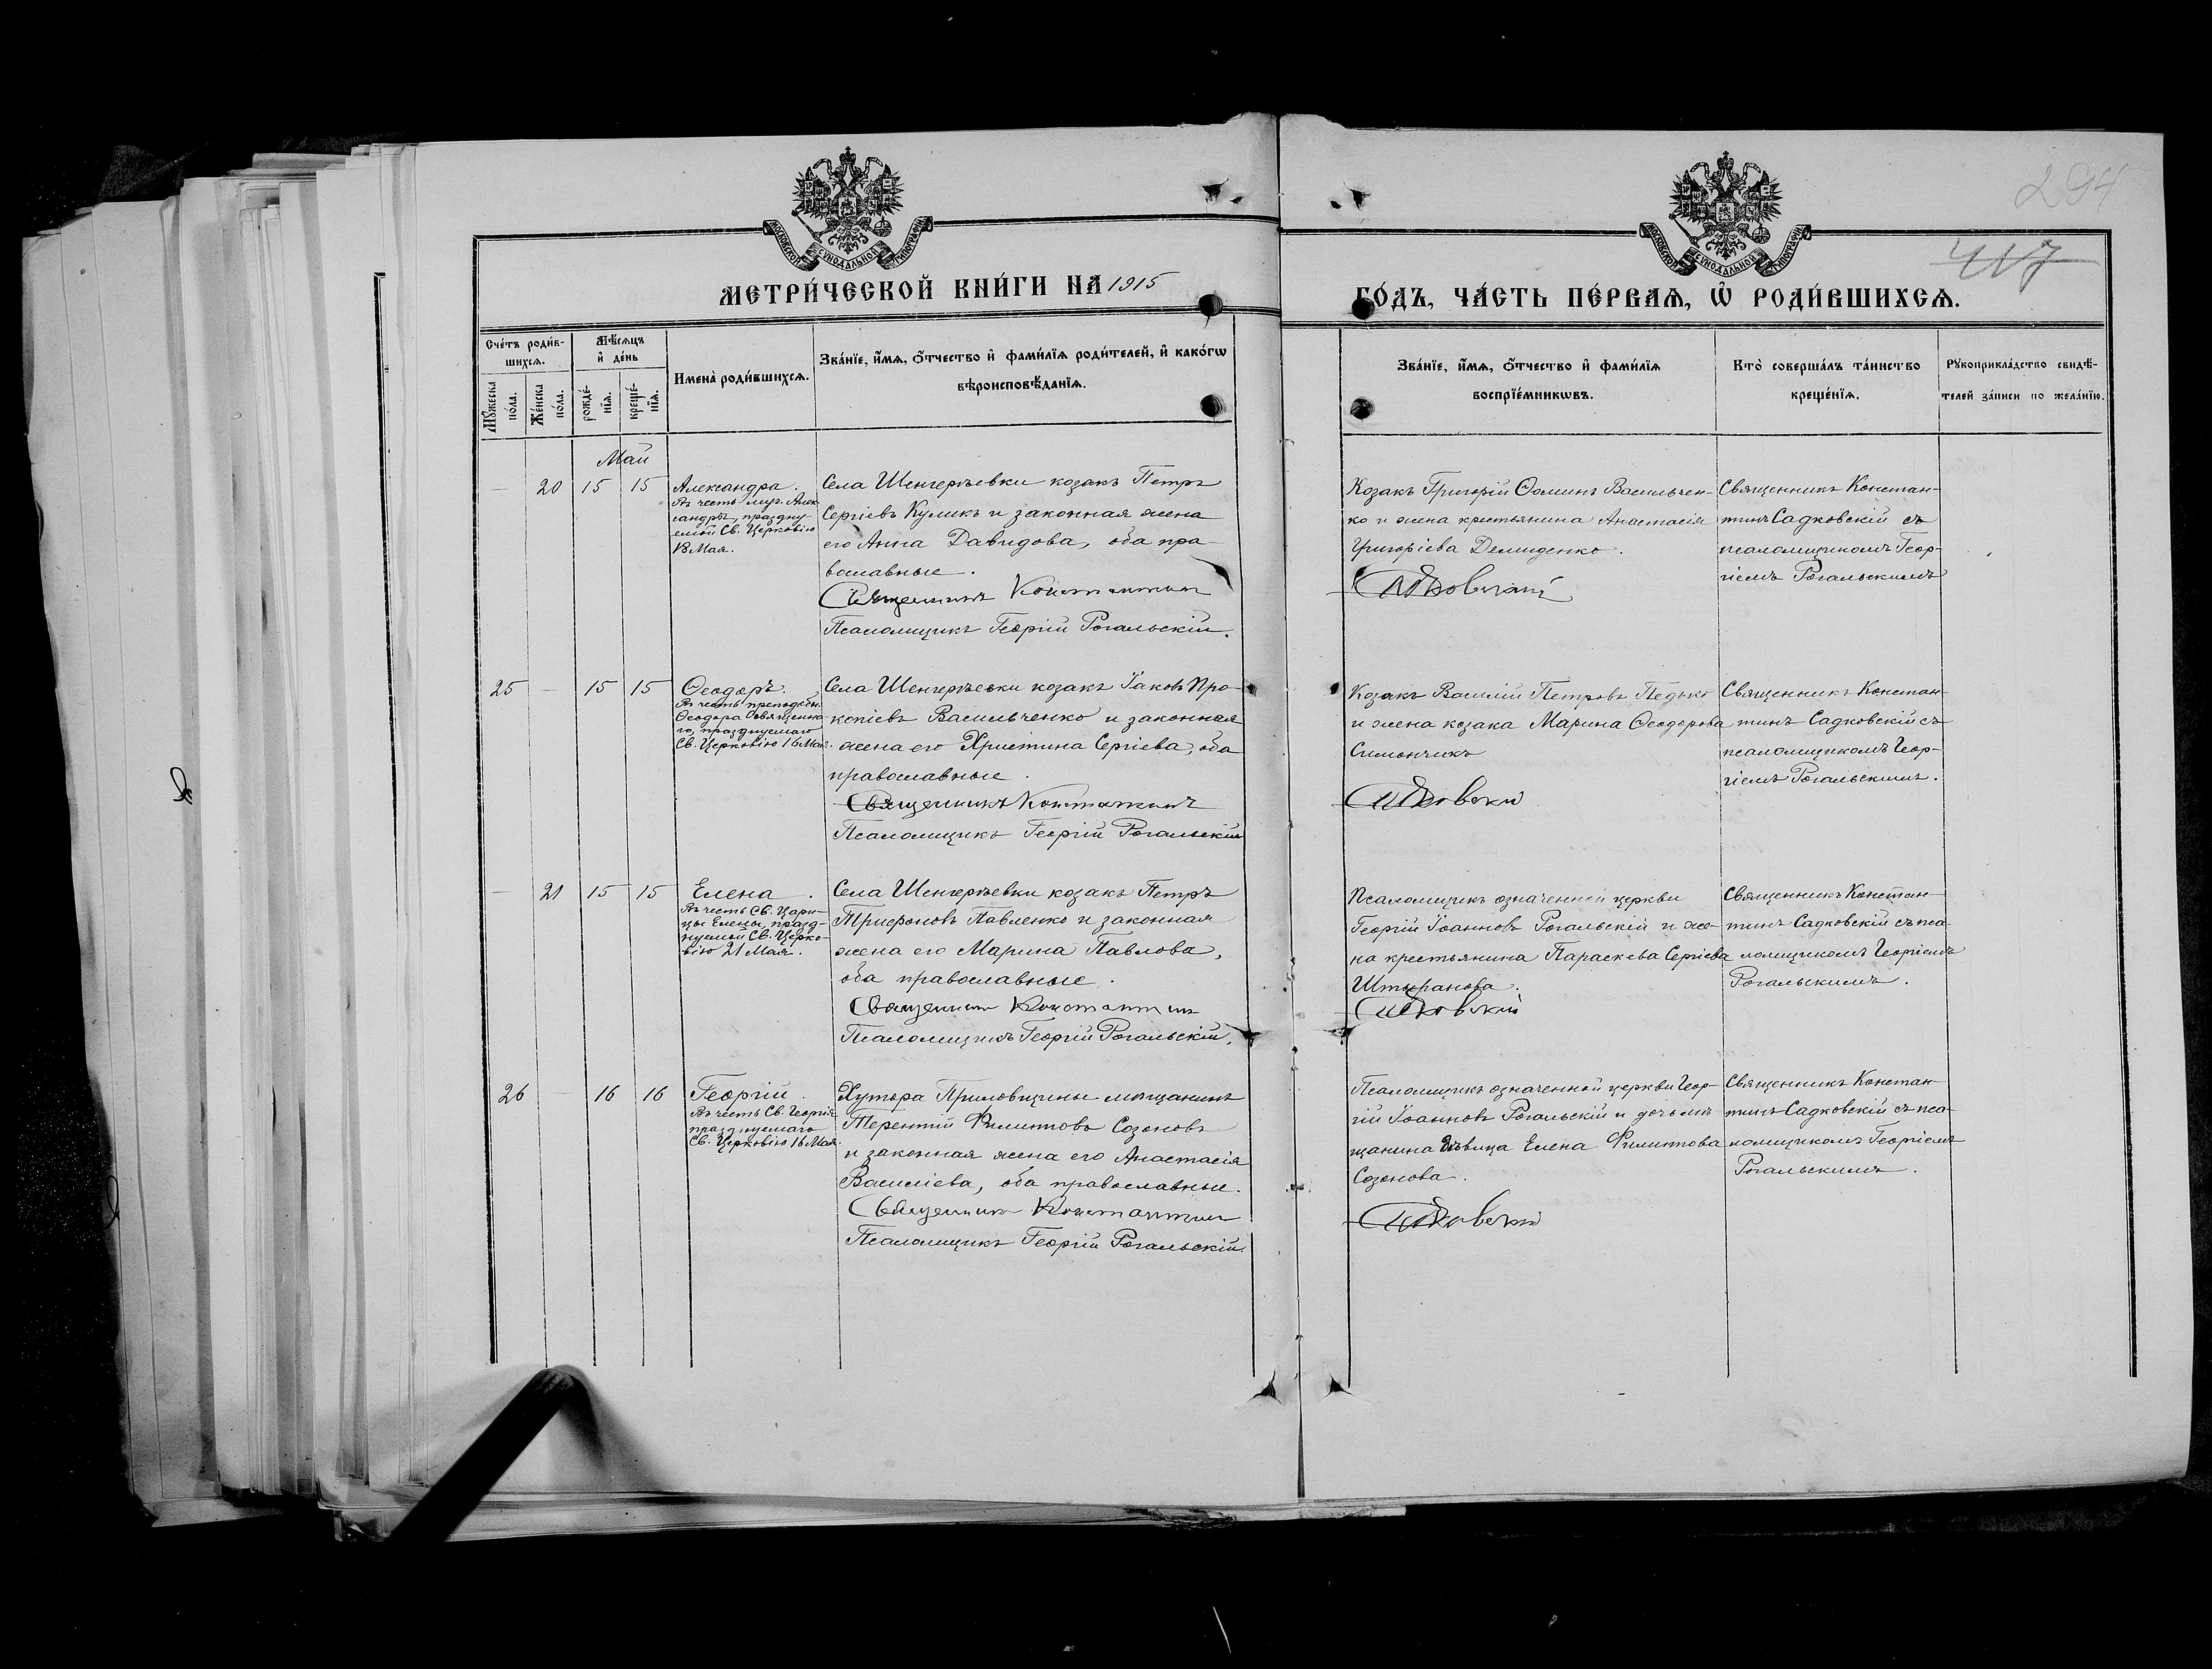 294
417
МОСКОВСКОЙ СѴНОДАЛЬНОЙ ТИПОГРАФІИ
МОСКОВСКОЙ СѴНОДАЛЬНОЙ ТИПОГРАФІИ
МЕТРИ́ЧЕСКОЙ КНИ́ГИ НА 1915
ГО́ДЪ, ЧА́СТЬ ПЕ́РВАѦ, Ѡ҆ РОДИ́ВШИХСѦ.
Сче́тъ роди́в-
шихсѧ.
Мꙋ́жеска
по́ла.
Же́нска
по́ла.
Мѣ́сѧцъ
и҆ де́нь
рожде́-
нїѧ.
креще́-
нїѧ.
Имена̀ роди́вшихсѧ.
Зва́нїе, и҆́мѧ, ѻ҆́тчество и҆ фами́лїѧ роди́телей, и҆ како́гѡ
вѣроисповѣ́данїѧ.
Зва́нїе, и҆́мѧ, ѻ҆́тчество и҆ фами́лїѧ
воспрїе́мникѡвъ.
Кто̀ соверша́лъ та́инство
креще́нїѧ.
Рꙋкоприкла́дство свидѣ́-
телей за́писи по жела́нїю.
Май
— 20 15 15
Александра.
Въ честь муч. Алек-
сандры, праздну-
емой Св. Церковію
18 Мая.
Села Шенгерѣевки козакъ Петръ
Сергіевъ Куликъ и законная жена
его Анна Давидова, оба пра-
вославные.
Священникъ Константин
Псаломщикъ Георгій Рогальскій.
Козакъ Григорій Ѳоминъ Васильчен-
ко и жена крестьянина Анастасія
Григоріева Демиденко.
Садковскій
Священникъ Констан-
тинъ Садковскій съ
псаломщикомъ Геор-
гіемъ Рогальскимъ
25 — 15 15
Ѳеодоръ.
Въ честь преподобн.
Ѳеодора Освященна-
го, празднуемаго
Св. Церковію 16 Мая.
Села Шенгерѣевки козакъ Іаковъ Про-
копіевъ Васильченко и законная
жена его Христина Сергіева, оба
православные.
Священникъ Константинъ
Псаломщикъ Георгій Рогальскій
Козакъ Василій Петровъ Педько
и жена козака Марина Ѳеодорова
Симончикъ
Садковскій
Священникъ Констан-
тинъ Садковскій съ
псаломщикомъ Геор-
гіемъ Рогальскимъ.
— 21 15 15
Елена.
Въ честь Св. Цари-
цы Елены, празд-
нуемой Св. Церко-
вію 21 Мая.
Села Шенгерѣевки козакъ Петръ
Трифоновъ Павленко и законная
жена его Марина Павлова,
оба православные.
Священник Константин
Псаломщикъ Георгій Рогальскій.
Псаломщикъ означенной церкви
Георгій Іоанновъ Рогальскій и же-
на крестьянина Параскева Сергіева
Штыранова.
Садковскій
Священникъ Констан-
тинъ Садковскій съ пса-
ломщикомъ Георгіемъ
Рогальскимъ.
26 — 16 16
Георгій.
Въ честь Св. Георгія
празднуемаго
Св. Церковію 16 Мая.
Хутора Примовщины мѣщанинъ
Терентій Филипповъ Созоновъ
и законная жена его Анастасія
Василіева, оба православные.
Священник Константин
Псаломщикъ Георгій Рогальскій.
Псаломщикъ означенной церкви Геор-
гій Іоанновъ Рогальскій и дочь мѣ-
щанина дѣвица Елена Филиппова
Созонова.
Садковскій
Священникъ Констан-
тинъ Садковскій съ пса-
ломщикомъ Георгіемъ
Рогальскимъ.